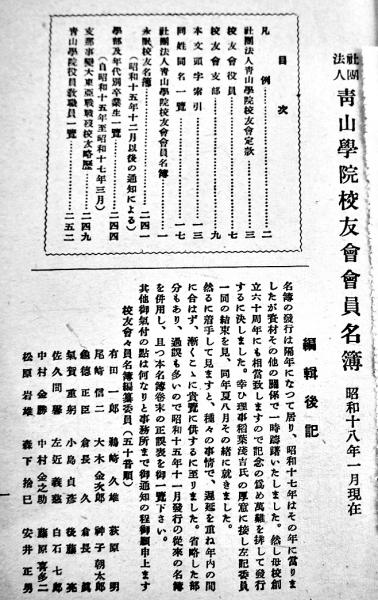 社團
法人 靑山學院校友會會員名簿 昭和十八年一月現在
目次
凡例……二
社團法人靑山學院校友會定款……三
校友會役員……七
校友會支部……九
本文頭字索引……一三
同姓同名一覽……一七
社團法人靑山學院校友會會員名簿……一
永眠校友名簿……二四一
(昭和十五年十二月以後の通知による)
學部及年代別卒業生一覽……二四四
(自昭和十五年至昭和十七年三月)
支那事變大東亞戰戰歿校友略歷……二四九
靑山學院役員敎職員一覽……二五二
編輯後記
名簿の發行は隔年になつて居り、昭和十七年はその年に當りま
したが資材その他の關係で一時躊躇いたしました。然し母校創
立六十周年にも相當致しますので記念の爲め萬難を排して發行
するに決しました。幸ひ理事稻葉淺吉氏の厚意に接し左記委員
一同の結束を見、同年夏八月その緖に就きました。
然るに着手して見ますと、種々の事情で、遲延を重ね年內の間
に合はず、漸くこゝに貴覽に供するに至りました。省略した部
分もあり、過誤も多いので昭和十五年十一月發行の從來の名簿
を併用し、且つ本名簿卷末の正誤表を御一覽下さい。
其他御氣付の點は何なりと事務所まで御通知の程御願申上ます
校友會々員名簿編纂委員(五十音順)
有田一郞 鵜崎久雄 萩原明
尾崎信二 大木金次郞 神子朝太郞
龜德正臣 倉長久 倉長眞
氣賀重躬 小島貞彥 後藤亮
佐久間馨 左近義慈 白石七郞
中村金勝 中村金之助 藤原喜多二
松原岩雄 森下捨巳 安井正男